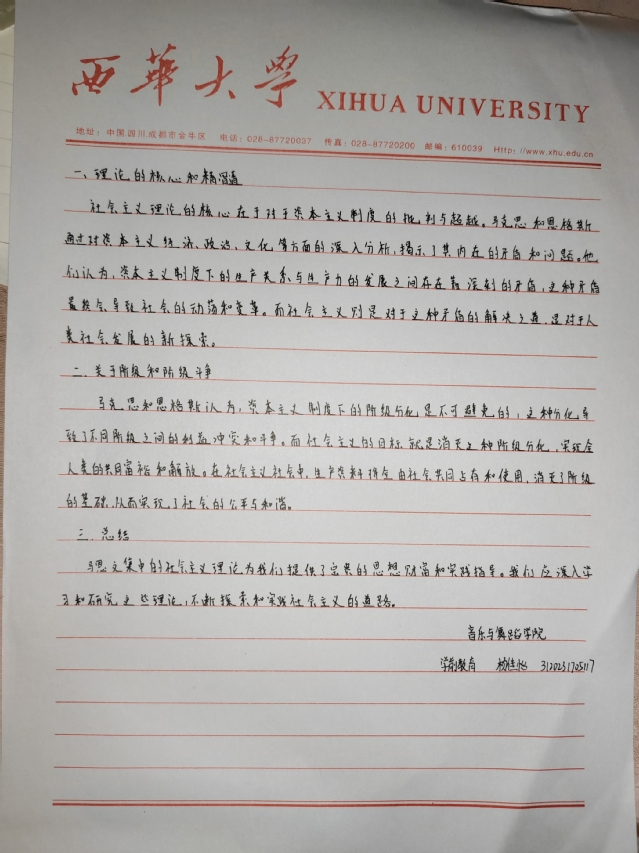 西華大學 XIHUA UNIVERSITY
地址：中国四川成都市金牛区 电话：028-87720037 传真：028-87720200 邮编：610039 Http://www.xhu.edu.cn
一、理论的核心和精
社会主义理论的核心在于对于资本主义制度的批判与超越。马克思和恩格斯
通过对资本主义经济、政治、文化等方面的深入分析，揭示了其内在的矛盾和问题。他
们认为，资本主义制度下的生产关系与生产力的发展之间存在着深刻的矛盾，这种矛盾
最终会导致社会的动荡和变革。而社会主义则是对于这种矛盾的解决之道，是对于人
类社会发展的新探索。
二、关于阶级和阶级斗争
马克思和恩格斯认为，资本主义制度下的阶级分化是不可避免的，这种分化导
致了不同阶级之间的利益冲突和斗争。而社会主义的目标就是消灭这种阶级分化，实现全
人类的共同富裕和解放。在社会主义社会中，生产资料将全由社会共同占有和使用，消灭了阶级
的基础，从而实现了社会的公平与和谐。
三、总结
马恩文集中的社会主义理论为我们提供了宝贵的思想财富和实践指导。我们应深入学
习和研究这些理论，不断探索和实践社会主义的道路。
音乐与舞蹈学院
学前教育 杨佳 3120231705117